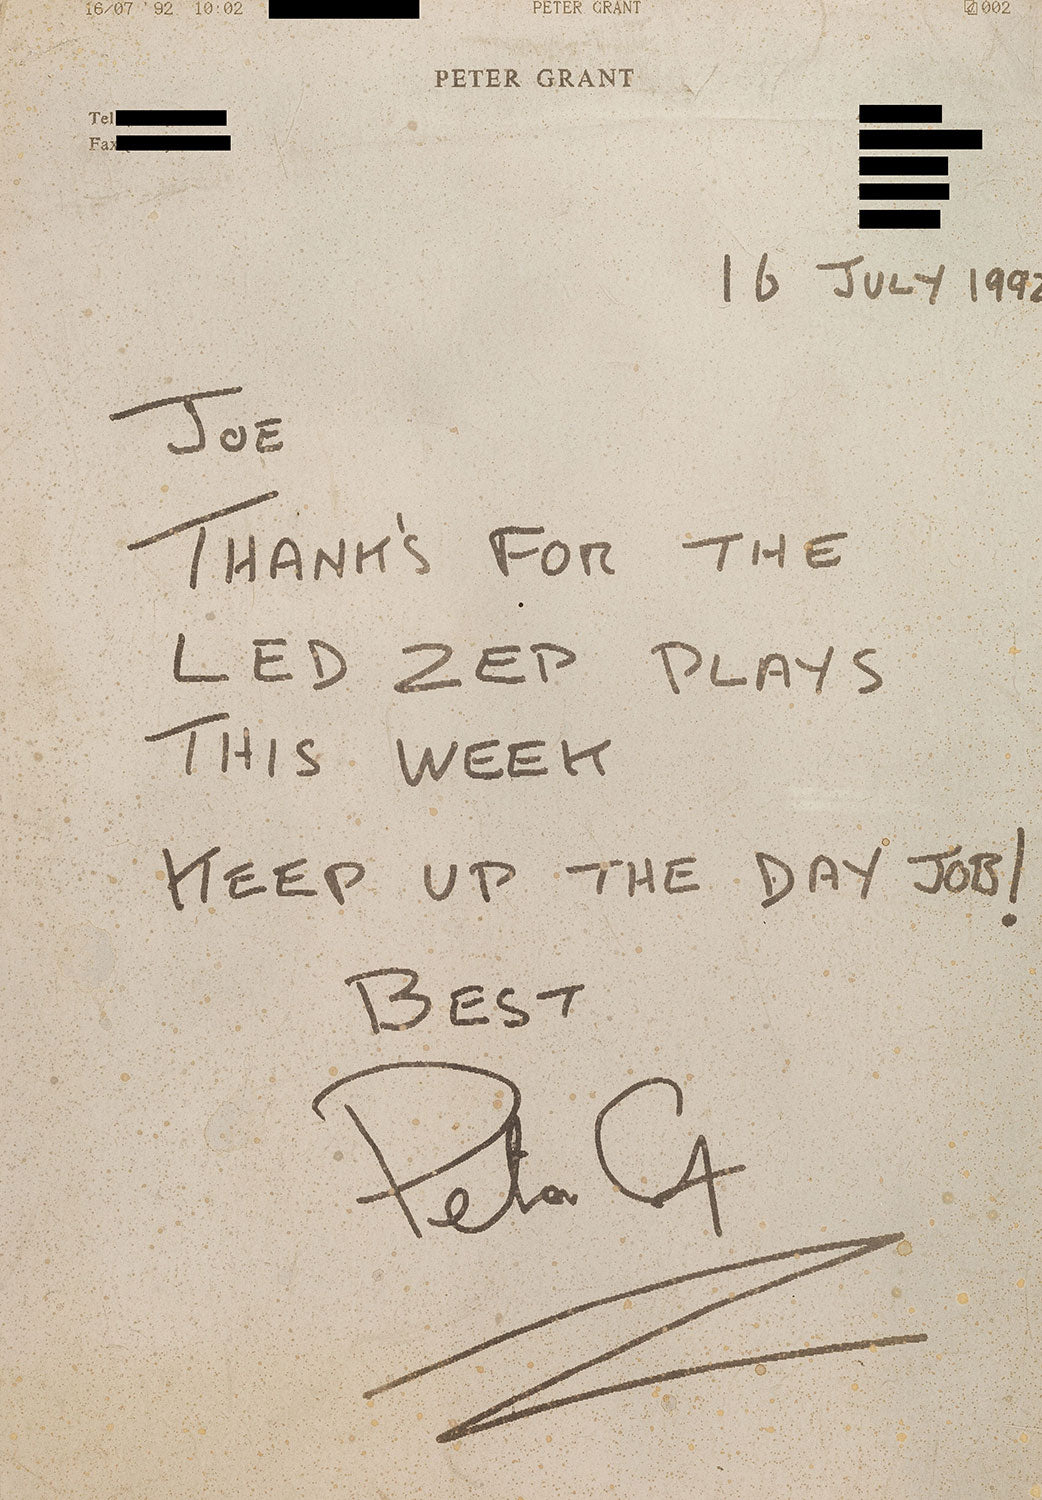 16/07 '92 10:02 PETER GRANT 002
PETER GRANT
Tel
Fax
16 JULY 1992
JOE
THANK'S FOR THE
LED ZEP PLAYS
THIS WEEK
KEEP UP THE DAY JOB!
BEST
Peter G